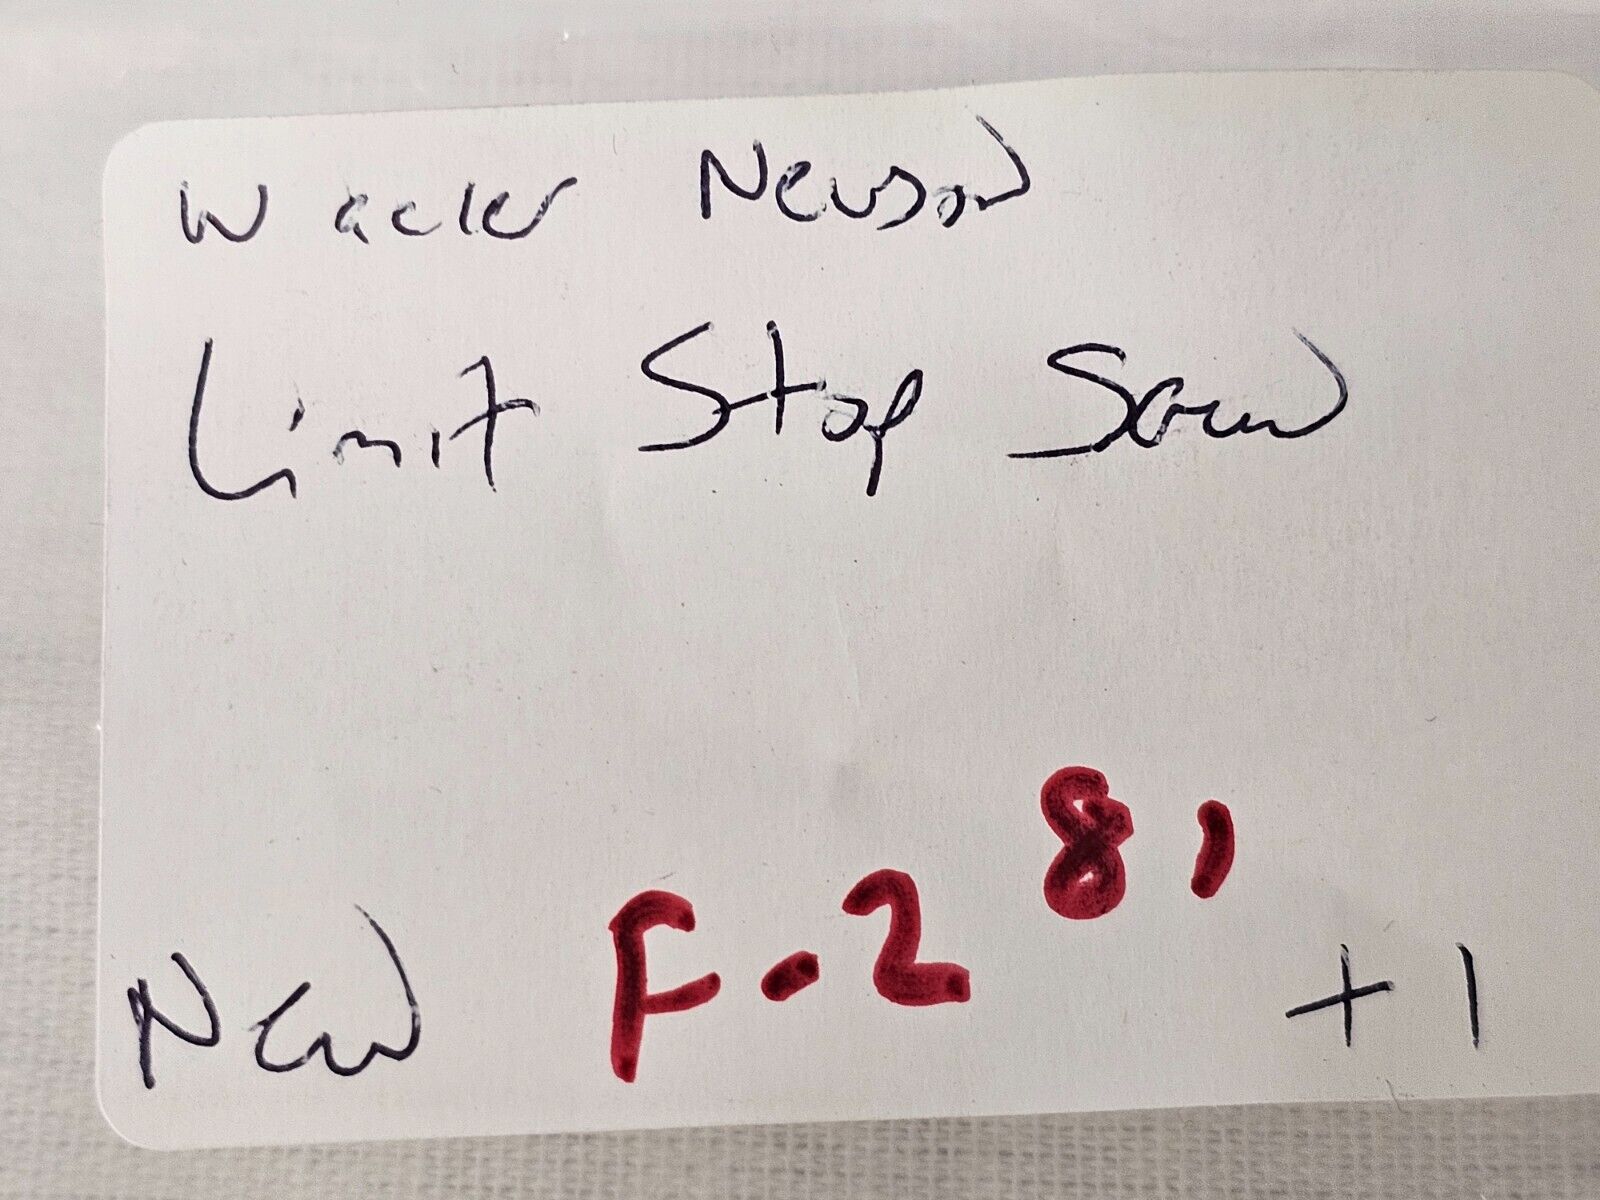 Wacker Neuson
Limit Stop Screw
New F-2 8, +1